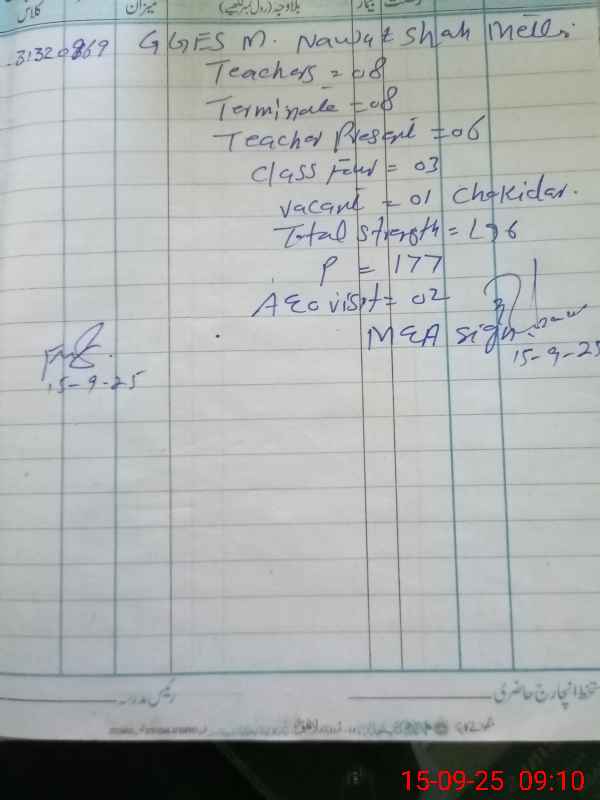 کلاس
میزان
31320869 GGES M. Nawaz Shah Metla
Teachers = 08
Terminate = 08
Teacher Present = 06
Class Four = 03
Vacant = 01 Chokidar.
Total Strength = 196
P = 177
AEO visit = 02
MEA Sign
15-9-25
15-9-25
رئیس مدرسہ
دستخط انچارج حاضری
15-09-25 09:10